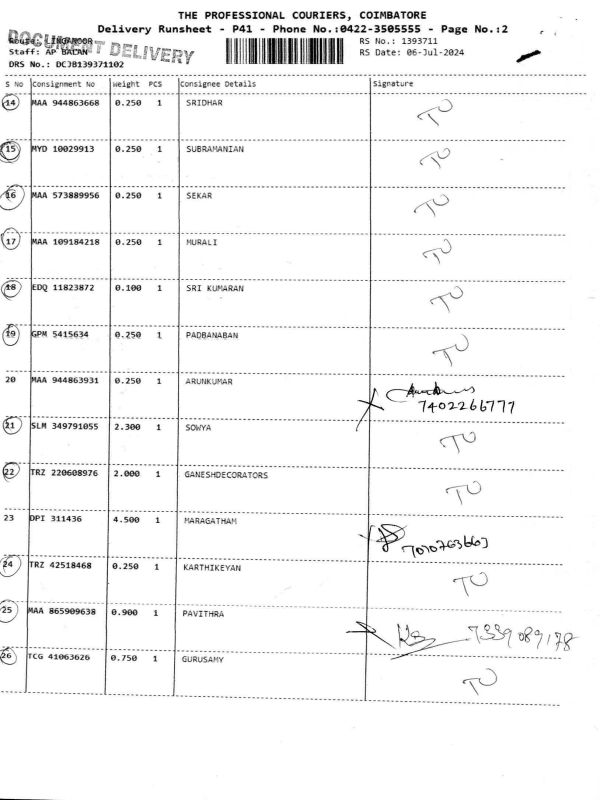 THE PROFESSIONAL COURIERS, COIMBATORE
Delivery Runsheet - P41 - Phone No.:0422-3505555 - Page No.:2
DOCUMENT DELIVERY
Route: LINGANOOR
RS No.: 1393711
Staff: AP BALAN
RS Date: 06-Jul-2024
DRS No.: DCJB139371102
S No Consignment No Weight PCS Consignee Details Signature
14 MAA 944863668 0.250 1 SRIDHAR TO
15 MYD 10029913 0.250 1 SUBRAMANIAN TO
16 MAA 573889956 0.250 1 SEKAR TO
17 MAA 109184218 0.250 1 MURALI TO
18 EDQ 11823872 0.100 1 SRI KUMARAN TO
19 GPM 5415634 0.250 1 PADBANABAN TO
20 MAA 944863931 0.250 1 ARUNKUMAR
7402266777
21 SLM 349791055 2.300 1 SOWYA TO
22 TRZ 220608976 2.000 1 GANESHDECORATORS TO
23 DPI 311436 4.500 1 MARAGATHAM
24 TRZ 42518468 0.250 1 KARTHIKEYAN TO
25 MAA 865909638 0.900 1 PAVITHRA 7339089178
26 TCG 41063626 0.750 1 GURUSAMY TO